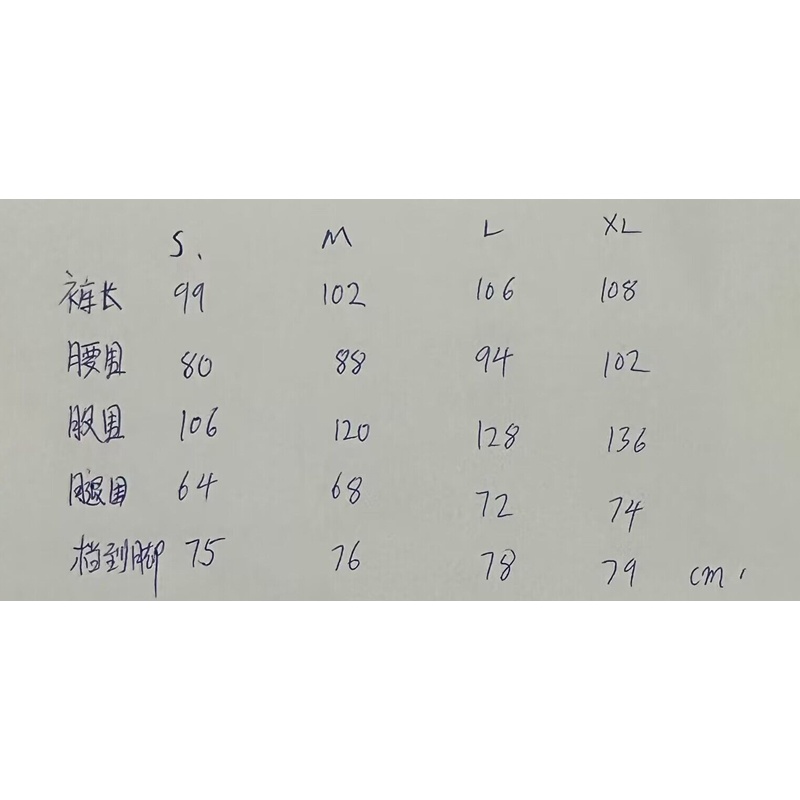 S. M L XL
裤长 99 102 106 108
腰围 80 88 94 102
股围 106 120 128 136
腿围 64 68 72 74
档到脚 75 76 78 79 cm,